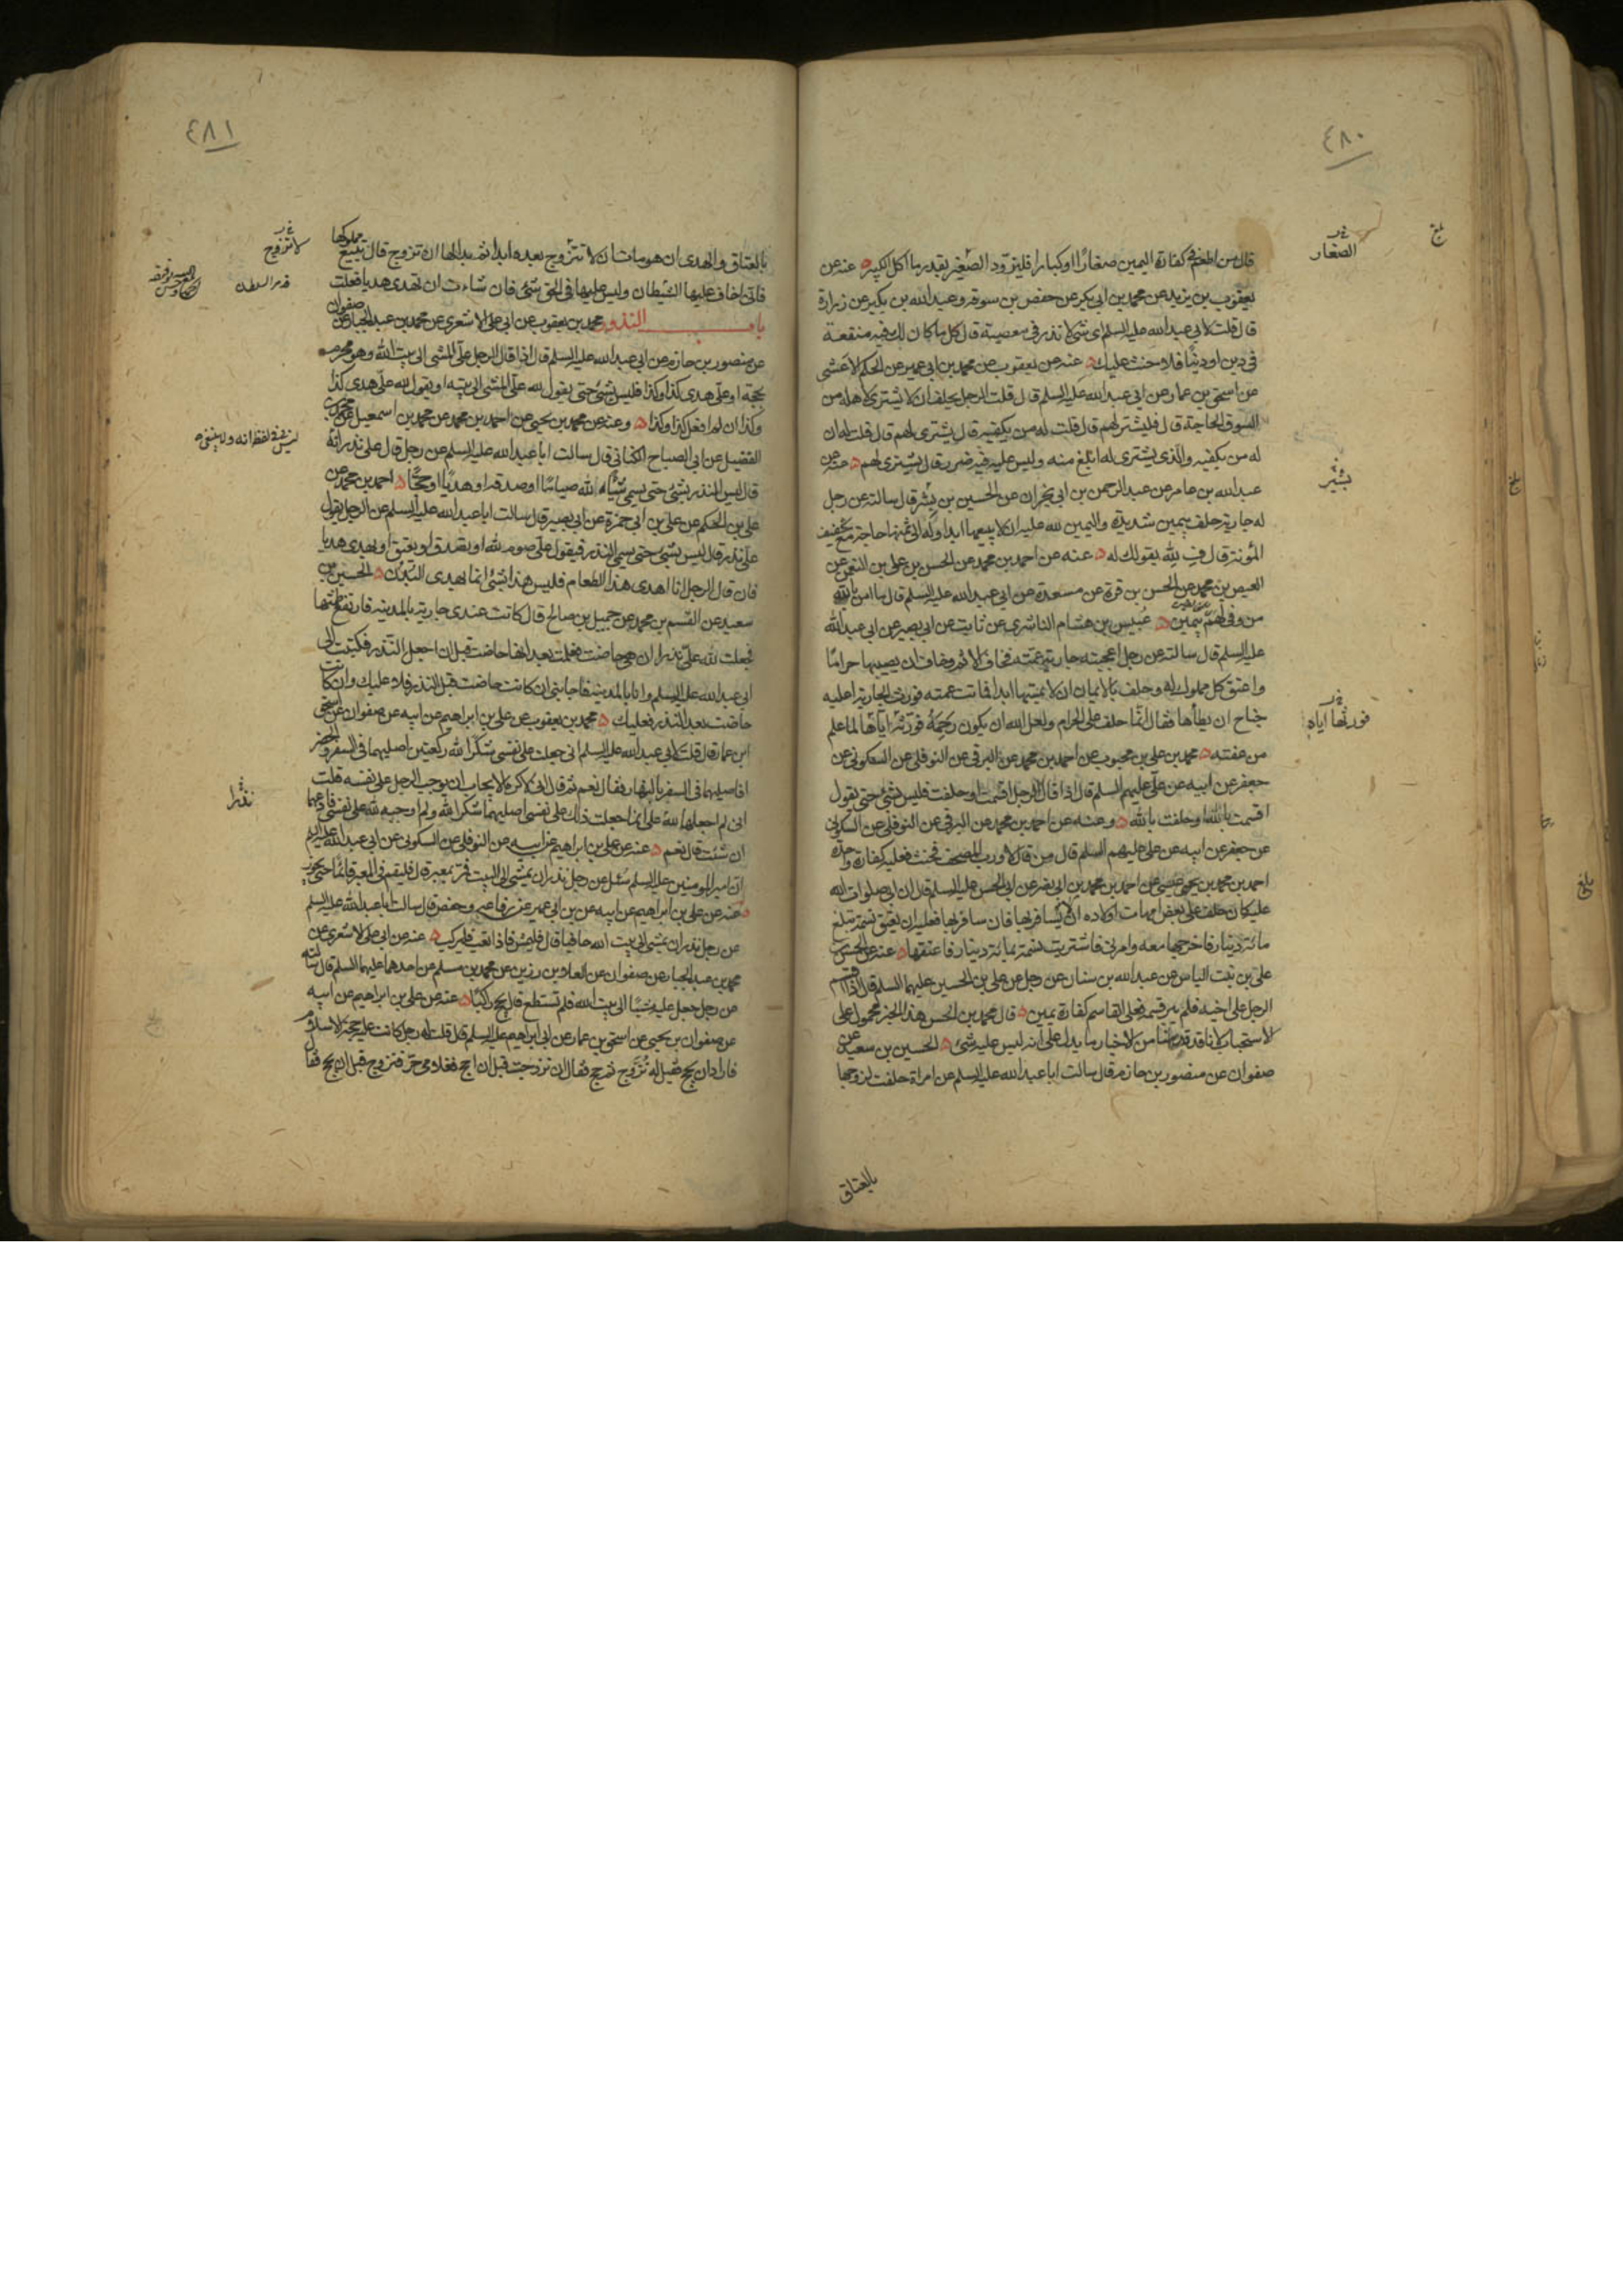 ٤٨٠
قال من اطعم في كفارة اليمين صغارًا او كبارا فليزود الصغير بقدر ما اكل الكبير عنه عن
الصغار
يعقوب بن يزيد عن محمد بن ابي بكير عن حفص بن سوقة وعبد الله بن بكير عن زرارة
قال قلت لابي عبد الله عليه السلم اي شي لا نذر في معصية قال كل ما كان لك فيه منفعة
في دين او دنيا فلا حنث عليك عنه عن يعقوب عن محمد بن ابي عمير عن الحكم الاعشى
عن اسحق بن عمار عن ابي عبد الله عليه السلم قال قلت الرجل يحلف ان لا يشتري لاهله من
السوق الحاجة قال فليشتر لهم قال قلت له من يكفيه قال يشتري لهم قال قلت له ان
له من يكفيه والذي يشتري له ابلغ منه وليس عليه فيه ضرر قال يشتري لهم عنه عن
عبد الله بن عامر عن عبد الرحمن بن ابي نجران عن الحسين بن بشر قال سالته عن رجل
بشير
له جارية حلف بيمين شديدة واليمين لله عليه ان لا يبيعها ابدا وله الى ثمنها حاجة مع تخفيف
المؤنة قال فِ لله بقولك له عنه عن احمد بن محمد عن الحسن بن علي بن النعمن عن
العيص بن محمد عن الحسن بن قرة عن مسعدة عن ابي عبد الله عليه السلم قال ما امن بالله
من وفى لهم بيمين عبيس بن هشام الناشري عن ثابت عن ابي بصير عن ابي عبد الله
عليه السلم قال سالته عن رجل اعجبته جارية عمته فخاف الاثم وخاف ان يصيبها حراما
واعتق كل مملوك له وحلف بالايمان ان لا يمسها ابدا فماتت عمته فورث الجارية اعليه
جناح ان يطأها فقال انما حلف على الحرام ولعل الله ان يكون رحمه فورثه اياها لما علم
فورثها اياه
من عفته محمد بن علي بن محبوب عن احمد بن محمد عن البرقي عن النوفلي عن السكوني عن
جعفر عن ابيه عن علي عليهم السلم قال اذا قال الرجل اقسمت او حلفت فليس بشئ حتى يقول
اقسمت بالله او حلفت بالله وعنه عن احمد بن محمد عن البرقي عن النوفلي عن السكوني
عن جعفر عن ابيه عن علي عليهم السلم قال من قال لا ورب المصحف فحنث فعليه كفارة واحدة
احمد بن محمد بن يحيى عن احمد بن محمد بن ابي نصر عن ابي الحسن عليه السلم قال ان ابي صلوات الله
عليه كان حلف على بعض امهات اولاده ان لا يسافر بها فان سافر بها فعليه ان يعتق نسمة تبلغ
مائة دينار فاخرجها معه وامرني فاشتريت نسمة بمائة دينار فاعتقها عنه عن الحسن
علي بن بنت الياس عن عبد الله بن سنان عن رجل عن علي بن الحسين عليهما السلم قال اذا اقسم
الرجل على اخيه فلم يبر قسمه فعلى القاسم كفارة يمين قال محمد بن الحسن هذا الخبر محمول على
الاستحباب لانا قد قدمنا من الاخبار ما يدل على انه ليس عليه شئ الحسين بن سعيد عن
صفوان عن منصور بن حازم قال سالت ابا عبد الله عليه السلم عن امراة حلفت لزوجها
بالعتاق
٤٨١
بالعتاق والهدى ان هو مات ان لا تتزوج بعده ابدا ثم بدا لها ان تزوج قال تبيع مملوكها
لا تتزوج
فاني اخاف عليها الشيطان وليس عليها في الحق شئ فان شاءت ان تهدي هديا فعلت
باب النذور محمد بن يعقوب عن ابي علي الاشعري عن محمد بن عبد الجبار عن صفوان
عن منصور بن حازم عن ابي عبد الله عليه السلم قال اذا قال الرجل علي المشي الى بيت الله وهو محرم
بحجة او علي هدي كذا وكذا فليس بشئ حتى يقول لله علي المشي الى بيته او يقول لله علي هدي كذا
وكذا ان لم افعل كذا وكذا وعنه عن محمد بن يحيى عن احمد بن محمد عن محمد بن اسمعيل عن محمد بن
الفضيل عن ابي الصباح الكناني قال سالت ابا عبد الله عليه السلم عن رجل قال علي نذر
قال ليس النذر بشئ حتى يسمي شيئا لله صياما او صدقة او هديا او حجا احمد بن محمد عن
علي بن الحكم عن علي بن ابي حمزة عن ابي بصير قال سالت ابا عبد الله عليه السلم عن الرجل يقول
علي نذر قال ليس بشئ حتى يسمي النذر فيقول علي صوم لله او يتصدق او يعتق او يهدي هديا
فان قال الرجل انا اهدي هذا الطعام فليس هذا بشئ انما يهدى البدن الحسين بن
سعيد عن القسم بن محمد عن جميل بن صالح قال كانت عندي جارية بالمدينة فارتفع طمثها
فجعلت لله علي نذرا ان هي حاضت فعلمت بعد انها حاضت قبل ان اجعل النذر فكتبت الى
ابي عبد الله عليه السلم وانا بالمدينة فاجابني ان كانت حاضت قبل النذر فلا عليك وان كانت
حاضت بعد النذر فعليك محمد بن يعقوب عن علي بن ابراهيم عن ابيه عن صفوان عن اسحق
ابن عمار قال قلت لابي عبد الله عليه السلم اني جعلت على نفسي شكرا لله ركعتين اصليهما في السفر والحضر
افاصليهما في السفر بالنهار فقال نعم ثم قال اني لاكره الايجاب ان يوجب الرجل على نفسه قلت
نذرا
اني لم اجعلهما لله علي انما جعلت ذلك على نفسي اصليهما شكرا لله ولم اوجبه لله على نفسي فادعهما
ان شئت قال نعم عنه عن علي بن ابراهيم عن ابيه عن النوفلي عن السكوني عن ابي عبد الله عليه السلم
ان امير المومنين عليه السلم سئل عن رجل نذر ان يمشي الى البيت فمر بمعبر قال فليقم في المعبر قائما حتى يجوز
عنه عن علي بن ابراهيم عن ابيه عن بن ابي عمير عن رفاعة وحفص قال سالت ابا عبد الله عليه السلم
عن رجل نذر ان يمشي الى بيت الله حافيا قال فليمش فاذا تعب فليركب عنه عن ابي علي الاشعري عن
محمد بن عبد الجبار عن صفوان عن العلا بن رزين عن محمد بن مسلم عن احدهما عليهما السلم قال سالته
عن رجل جعل عليه مشيا الى بيت الله فلم يستطع قال يحج راكبا عنه عن علي بن ابراهيم عن ابيه
عن صفوان بن يحيى عن اسحق بن عمار عن ابي ابراهيم عليه السلم قال قلت له رجل كانت عليه حجة الاسلام
فاراد ان يحج فقيل له تزوج ثم حج فقال ان تزوجت قبل ان احج فغلامي حر فتزوج قبل ان يحج فقال